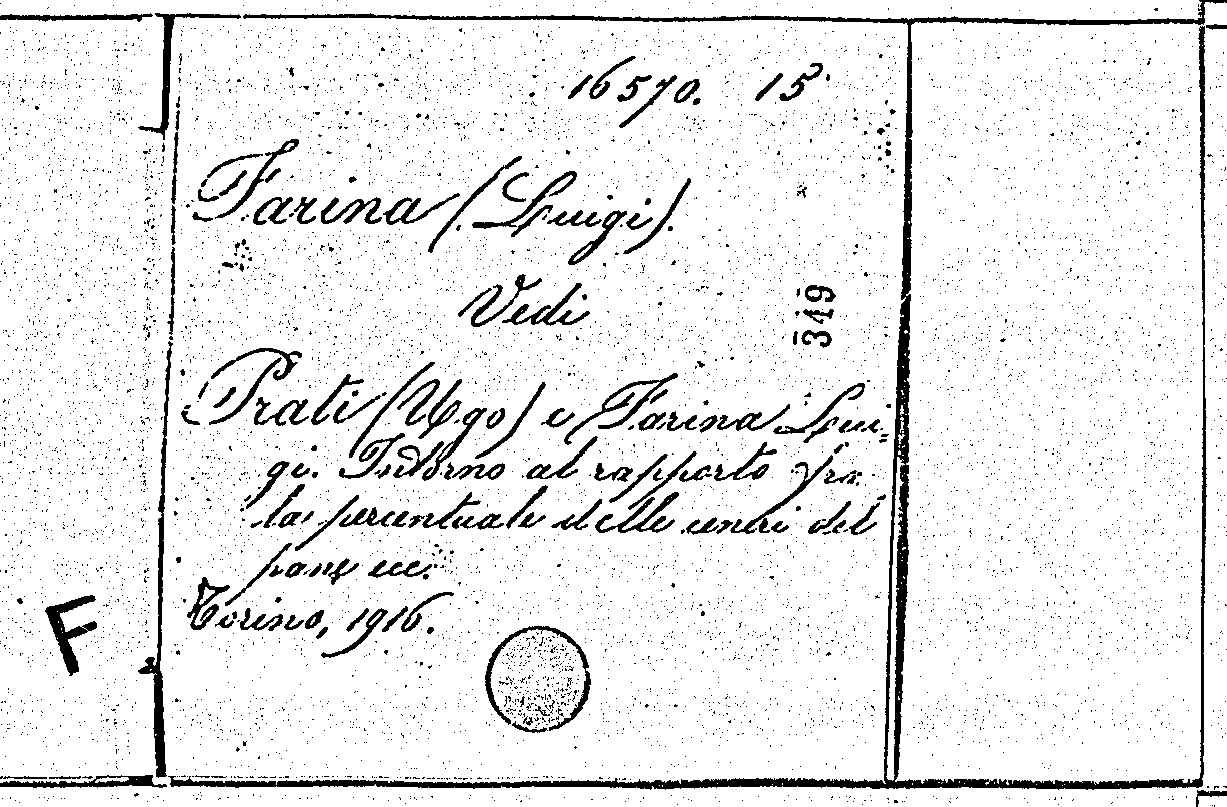 16570. 15
Farina (Luigi).
Vedi
349
Prati (Ugo) e Farina Lui-
gi. Intorno al rapporto fra
la percentuale delle ceneri del
pane ecc.
Torino, 1916.
F